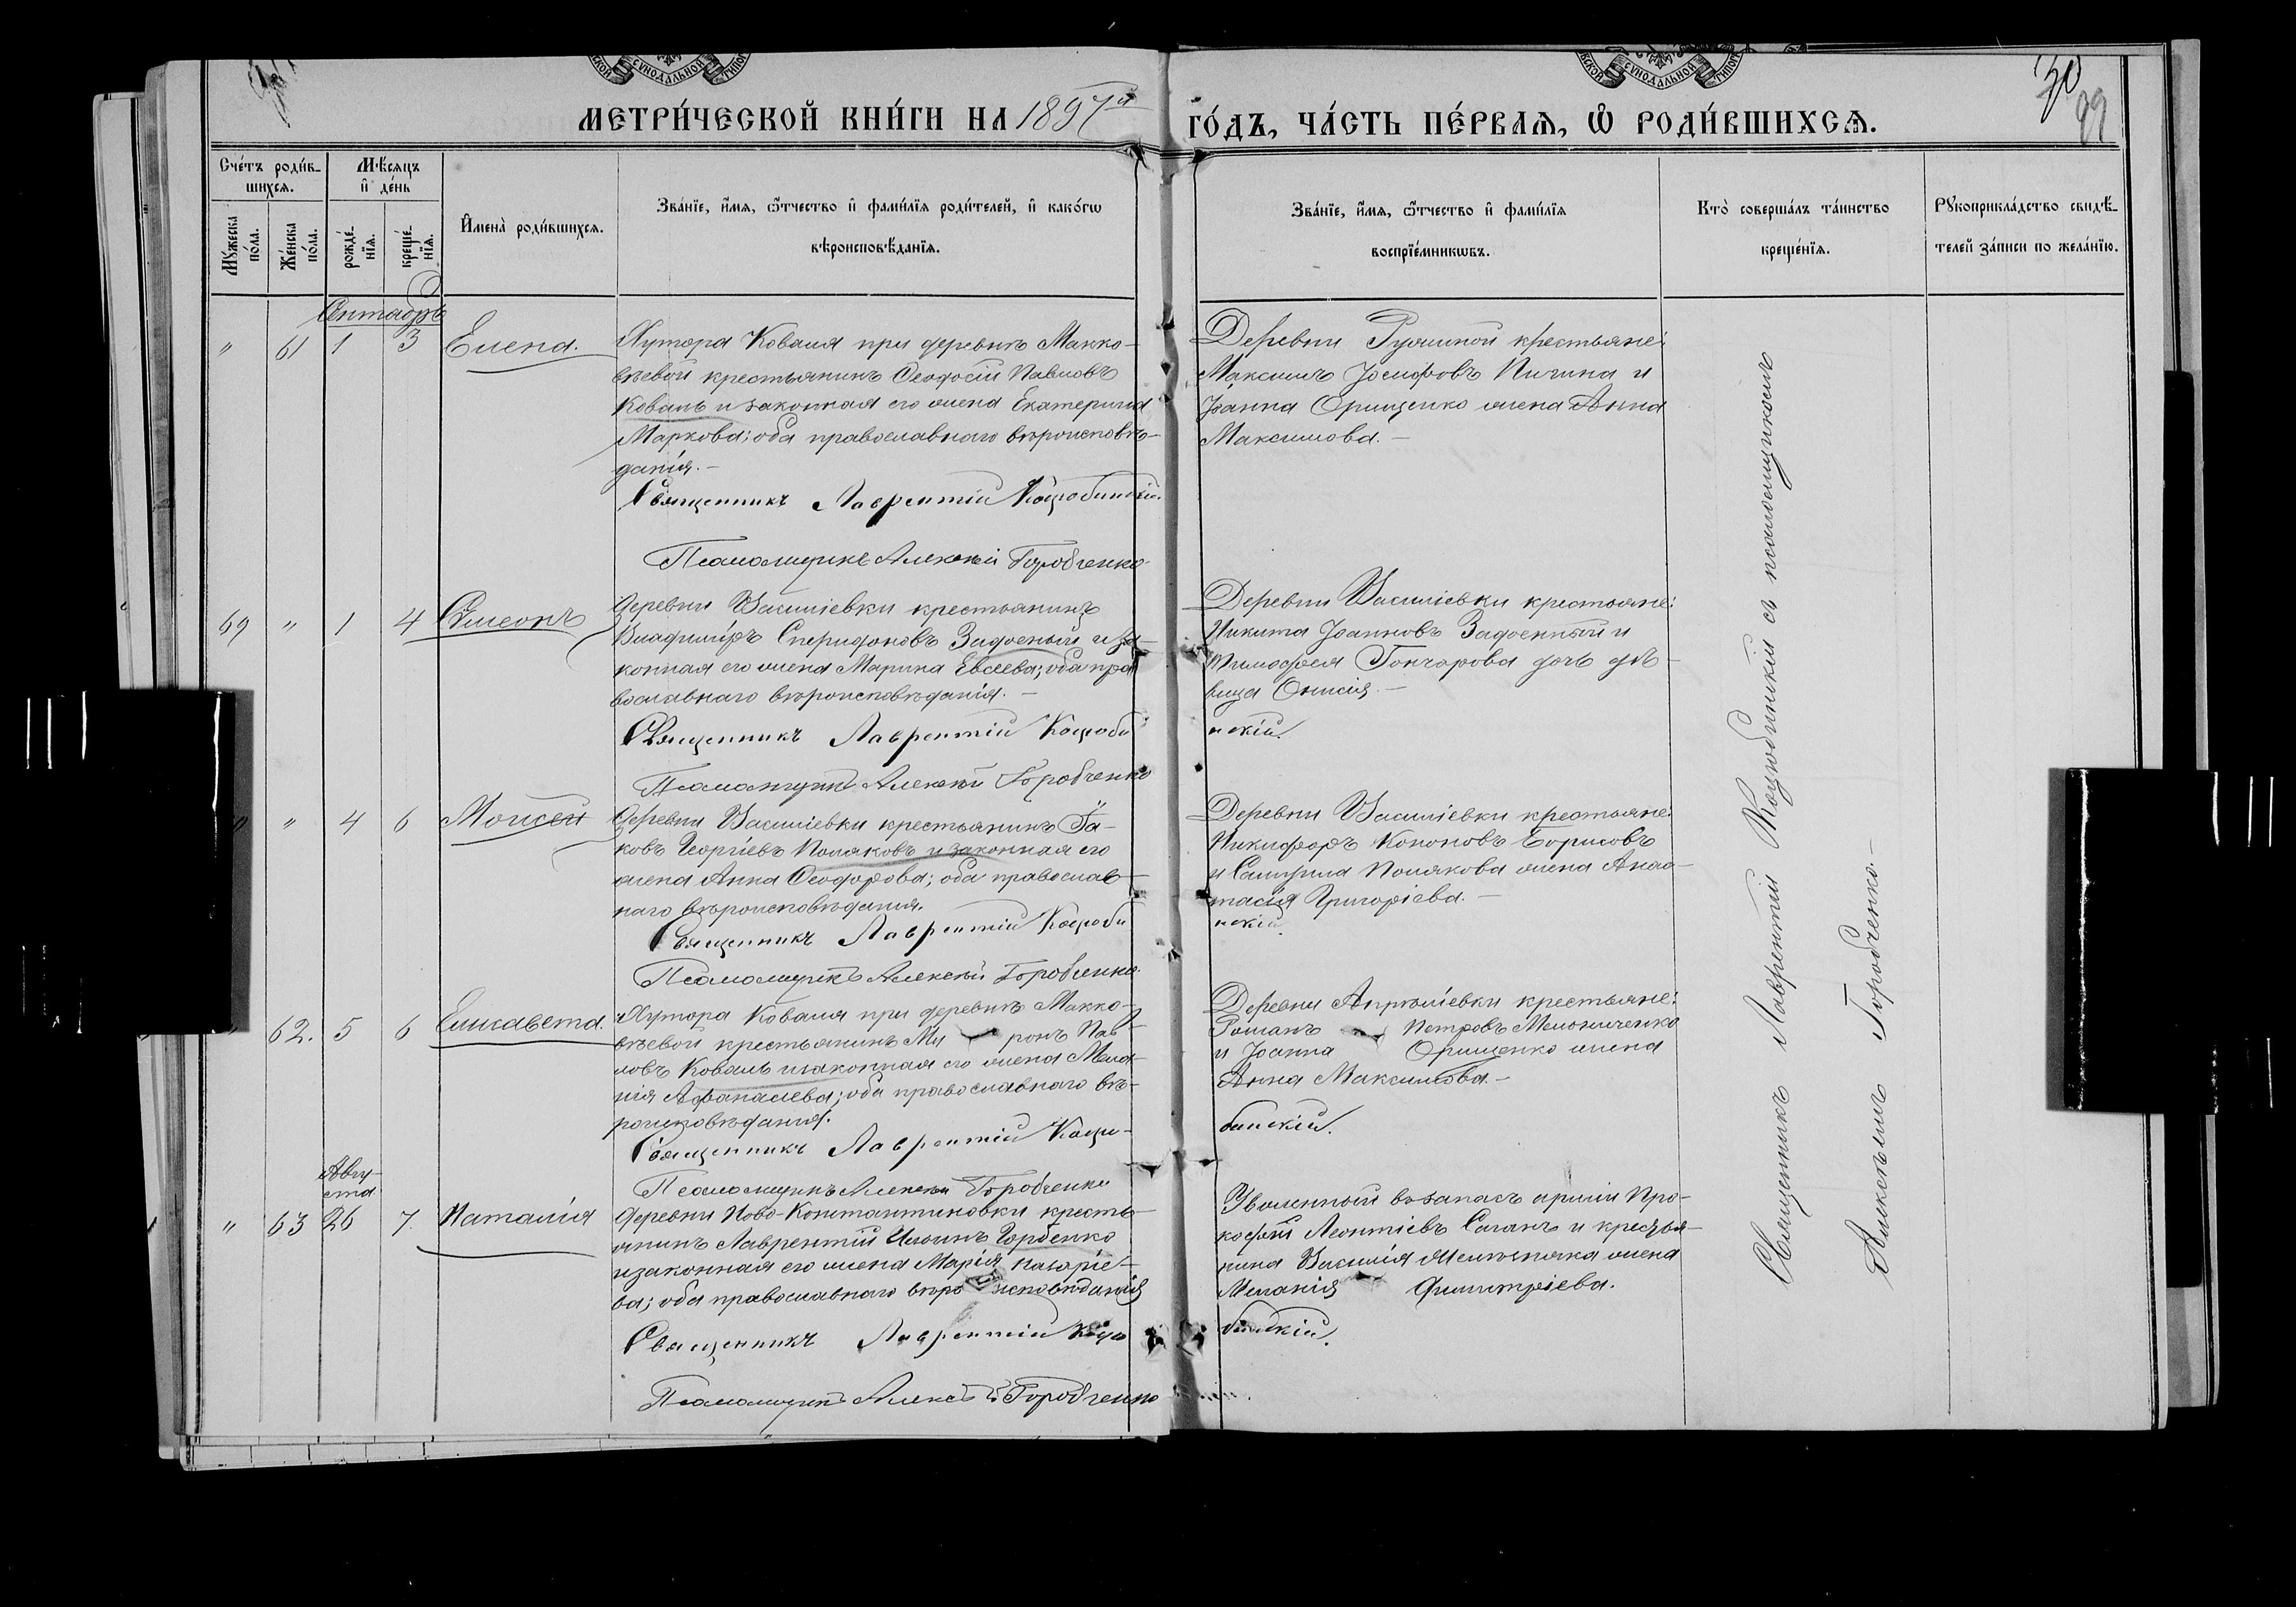 МЕТРИ́ЧЕСКОЙ КНИ́ГИ НА 1897й ГО́ДЪ, ЧА́СТЬ ПЕ́РВАѦ, Ѡ РОДИ́ВШИХСѦ.
30
99
Сче́тъ роди́в-
шихсѧ.
Мѣ́сѧцъ
и де́нь
Мꙋ́жеска
по́ла.
Же́нска
по́ла.
рожде́-
нїѧ.
креще́-
нїѧ.
И҆мена̀ роди́вшихсѧ.
Зва́нїе, и҆́мѧ, ѻ҆́тчество и҆ фами́лїѧ роди́телей, и҆ како́гѡ
вѣроисповѣ́данїѧ.
Зва́нїе, и҆́мѧ, ѻ҆́тчество и҆ фами́лїѧ
воспрїе́мникѡвъ.
Кто̀ соверша́лъ та́инство
креще́нїѧ.
Рꙋкоприкла́дство свидѣ́-
телей за́писи по жела́нїю.
Сентябрь
" 61 1 3 Елена.
Хутора Коваля при деревнѣ Макко-
вѣевой крестьянинъ Ѳеодосій Павловъ
Коваль и законная его жена Екатерина
Маркова; оба православнаго вѣроисповѣ-
данія.-
Священникъ Лаврентій Коцюбинскій.
Псаломщикъ Алексѣй Горобченко
Деревни крестьяне:
Максимъ Іосифовъ и
Іоанна Орищенко жена Анна
Максимова.-
69 " 1 4 Сѵмеонъ
Деревни Василіевки крестьянинъ
Владиміръ Спиридоновъ Задоеный и за-
конная его жена Марина Евсеева; оба пра
вославнаго вѣроисповѣданія.-
Священникъ Лаврентій Коцюби
нскій.
Псаломщикъ Алексѣй Горобченко
Деревни Василіевки крестьяне:
Никита Іоанновъ Задоенный и
Тимофея Гончарова дочь дѣ-
вица Онисія.-
" 4 6 Моисей
Деревни Василіевки крестьянинъ Іа-
ковъ Георгіевъ Поляковъ и законная его
жена Анна Ѳеодорова; оба православ-
наго вѣроисповѣданія.
Священникъ Лаврентій Коцюби
нскій.
Псаломщикъ Алексѣй Горобченко
Деревни Василіевки крестьяне:
Никифоръ Кононовъ Борисовъ
и Самуила Полякова жена Анас-
тасія Григоріева.-
62. 5 6 Елисавета.
Хутора Коваля при деревнѣ Макко-
вѣевой крестьянинъ Ми ронъ Пав-
ловъ Коваль и законная его жена Мела-
нія Афанасіева; оба православнаго вѣ-
роисповѣданія.
Священникъ Лаврентій Коцю-
бинскій.
Псаломщикъ Алексѣй Горобченко
Деревни крестьяне:
Романъ Петровъ Мельниченко
и Іоанна Орищенко жена
Анна Максимова.-
Авгу-
ста
" 63 26 7. Наталія
Деревни Ново-Константиновки кресть-
янинъ Лаврентій Ильинъ Горбенко
и законная его жена Марія Назаріе-
ва; оба православнаго вѣро исповѣданія
Священникъ Лаврентій Коцю
бинскій.
Псаломщикъ Алексѣй Горобченко
Уволенный въ запасъ арміи Про-
кофій Леонтіевъ Саганъ и крестья-
нина Василія жена
Меланія Димитріева.
Священникъ Лаврентій Коцюбинскій съ псаломщикомъ
Алексѣемъ Горобченко.-